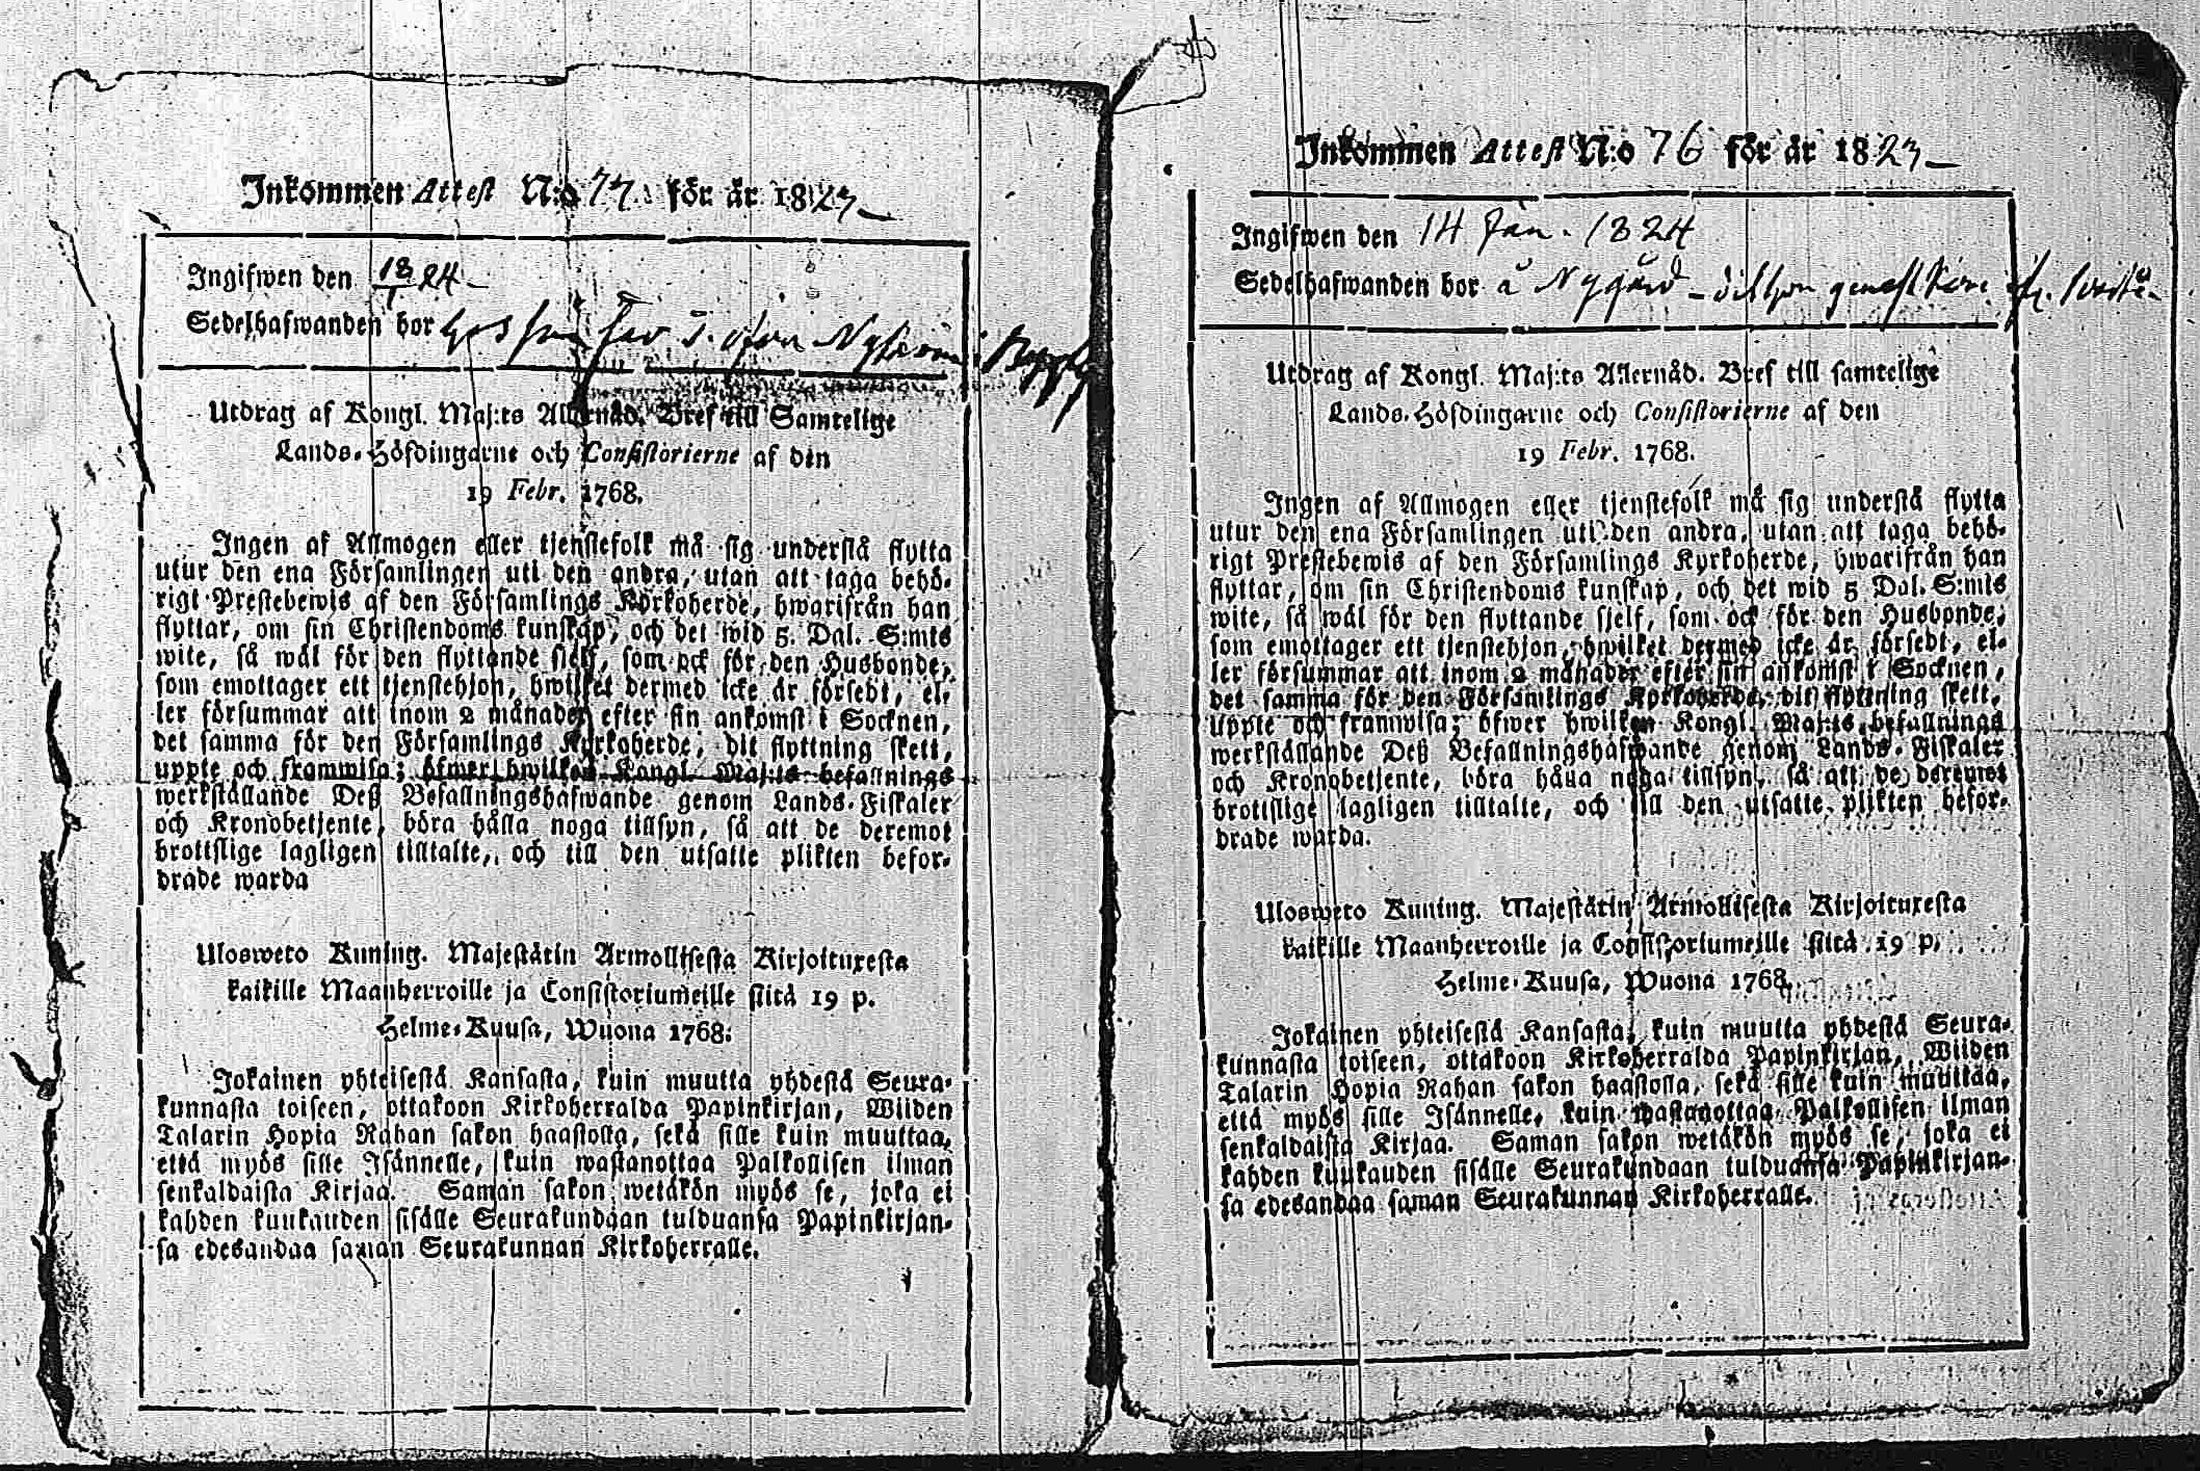 Inkommen Attest N:o 77. för år 1823
Ingifwen den 18/1 24
Sedelhafwanden bor hos sin far i. ofvan
Utdrag af Kongl. Maj:ts Allernåd. Bref till Samtelige
Lands-Höfdingarne och Consistorierne af den
19 Febr. 1768.
Ingen af Allmogen eller tjenstefolk må sig understå flytta
utur den ena Församlingen uti den andra, utan att taga behö-
rigt Prestebewis af den Församlings Kyrkoherde, hwarifrån han
flyttar, om sin Christendoms kunskap, och det wid 5. Dal. S:mts
wite, så wäl för den flyttande sjelf, som ock för den Husbonde,
som emottager ett tjenstehjon, hwilket dermed icke är försedt, el-
ler försummar att inom 2 månader efter sin ankomst i Socknen,
det samma för den Församlings Kyrkoherde, dit flyttning skett,
uppte och framwisa; öfwer hwilken Kongl. Maj:ts befallnings
werkställande Deß Befallningshafwande genom Lands-Fiskaler
och Kronobetjente, böra hålla noga tillsyn, så att de deremot
brottslige lagligen tilltalte, och till den utsatte plikten befor-
drade warda
Ulosweto Kuning. Majestätin Armollisesta Kirjoituxesta
kaikille Maanherroille ja Consistoriumeille siitä 19 p.
Helme-Kuusa, Wuona 1768.
Jokainen yhteisestä Kansasta, kuin muutta yhdestä Seura-
kunnasta toiseen, ottakoon Kirkoherralda Papinkirjan, Wiiden
Talarin Hopia Rahan sakon haastolla, sekä sille kuin muuttaa,
että myös sille Isännelle, kuin wastanottaa Palkollisen ilman
senkaldaista Kirjaa. Saman sakon wetäkön myös se, joka ei
kahden kuukauden sisälle Seurakundaan tulduansa Papinkirjan-
sa edesandaa saman Seurakunnan Kirkoherralle.
Inkommen Attest N:o 76 för år 1823
Ingifwen den 14 Jan. 1824
Sedelhafwanden bor å Nygård
Utdrag af Kongl. Maj:ts Allernåd. Bref till samtelige
Lands-Höfdingarne och Consistorierne af den
19 Febr. 1768.
Ingen af Allmogen eller tjenstefolk må sig understå flytta
utur den ena Församlingen uti den andra, utan att taga behö-
rigt Prestebewis af den Församlings Kyrkoherde, hwarifrån han
flyttar, om sin Christendoms kunskap, och det wid 5 Dal. S:mts
wite, så wäl för den flyttande sjelf, som ock för den Husbonde,
som emottager ett tjenstehjon, hwilket dermed icke är försedt, el-
ler försummar att inom 2 månader efter sin ankomst i Socknen,
det samma för den Församlings Kyrkoherde, dit flyttning skett,
uppte och framwisa; öfwer hwilken Kongl. Maj:ts befallnings
werkställande Deß Befallningshafwande genom Lands-Fiskaler
och Kronobetjente, böra hålla noga tillsyn, så att de deremot
brottslige lagligen tilltalte, och till den utsatte plikten befor-
drade warda.
Ulosweto Kuning. Majestätin Armollisesta Kirjoituxesta
kaikille Maanherroille ja Consistoriumeille siitä 19 p.
Helme-Kuusa, Wuona 1768.
Jokainen yhteisestä Kansasta, kuin muutta yhdestä Seura-
kunnasta toiseen, ottakoon Kirkoherralda Papinkirjan, Wiiden
Talarin Hopia Rahan sakon haastolla, sekä sille kuin muuttaa,
että myös sille Isännelle, kuin wastanottaa Palkollisen ilman
senkaldaista Kirjaa. Saman sakon wetäkön myös se, joka ei
kahden kuukauden sisälle Seurakundaan tulduansa Papinkirjan-
sa edesandaa saman Seurakunnan Kirkoherralle.